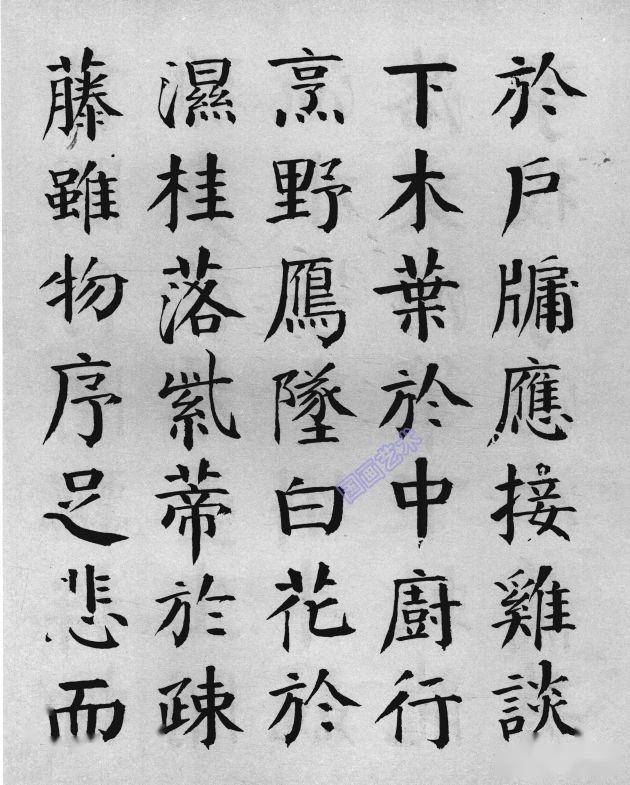 於戶牖應接雞談
下木葉於中廚行
烹野鴈墜白花於
濕桂落紫蒂於疎
藤雖物序足悲而
国画艺术